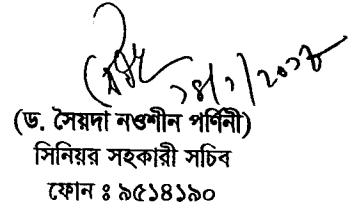 ১৪/১/২০১৮
(ড. সৈয়দা নওশীন পর্ণিনী)
সিনিয়র সহকারী সচিব
ফোন ঃ ৯৫১৪১৯০